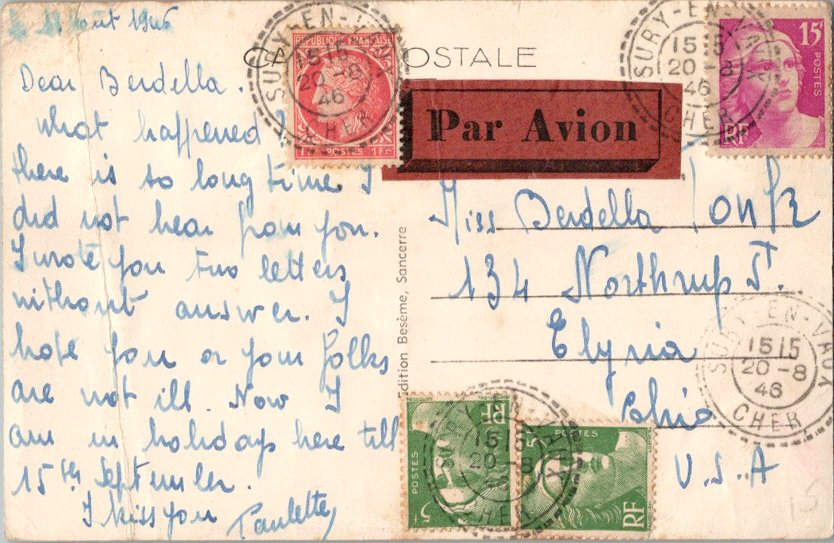 11 Août 1946
Dear Berdella.
What happened?
there is so long time I
did not hear from you.
I wrote you two letters
without answer. I
hope you or your folks
are not ill. Now I
am in holidays here till
15th September.
I kiss you Paulette
OSTALE
Par Avion
Miss Berdella
134 Northrup St.
Elyria
Ohio
U.S.A
Edition Besème, Sancerre
REPUBLIQUE FRANÇAISE
SURY-EN-VAUX
1515
20-8
46
CHER
15F
POSTES
RF
SURY-EN-VAUX
1515
20-8
46
CHER
SURY-EN-VAUX
1515
20-8
46
CHER
POSTES
RF
5
SURY-EN-VAUX
1515
20-8
46
CHER
POSTES
5
RF
15